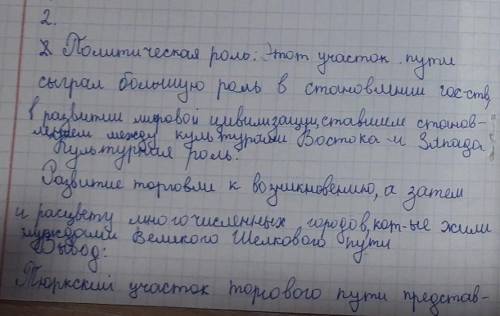 2.
Политическая роль: Этот участок пути
сыграл большую роль в становлении гос-ств,
в развитии мировой цивилизации, ставшием станов-
лением между культурами Востока и Запада
Культурная роль:
Развитие торговли к возникновению, а затем
и расцвету многочисленных городов, кот-ые жили
нуждами Великого Шелкового пути
Вывод:
Тюркский участок торгового пути представ-